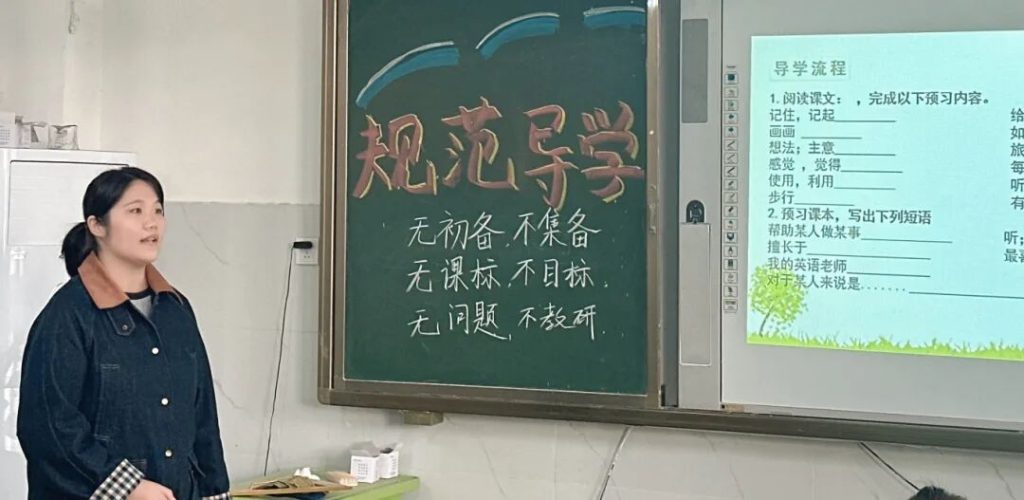 规范导学
无初备,不集备
无课标,不目标.
无问题,不教研.
导学流程
1. 阅读课文: ,完成以下预习内容。
记住,记起________
画画 ________
想法;主意________
感觉 ,觉得________
使用,利用________
步行________
2. 预习课本,写出下列短语
帮助某人做某事____________
擅长于____________
我的英语老师____________
对于某人来说是.......____________
给
如
旅
每
听
有
听;
最喜